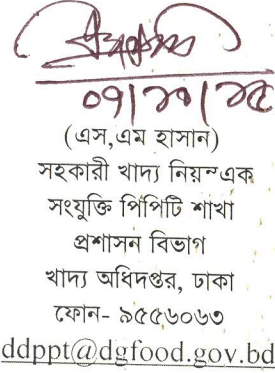 ০৭/১০/১৫
(এস,এম হাসান)
সহকারী খাদ্য নিয়ন্ত্রক
সংযুক্তি পিপিটি শাখা
প্রশাসন বিভাগ
খাদ্য অধিদপ্তর, ঢাকা
ফোন- ৯৫৫৬০৬৩
ddppt@dgfood.gov.bd